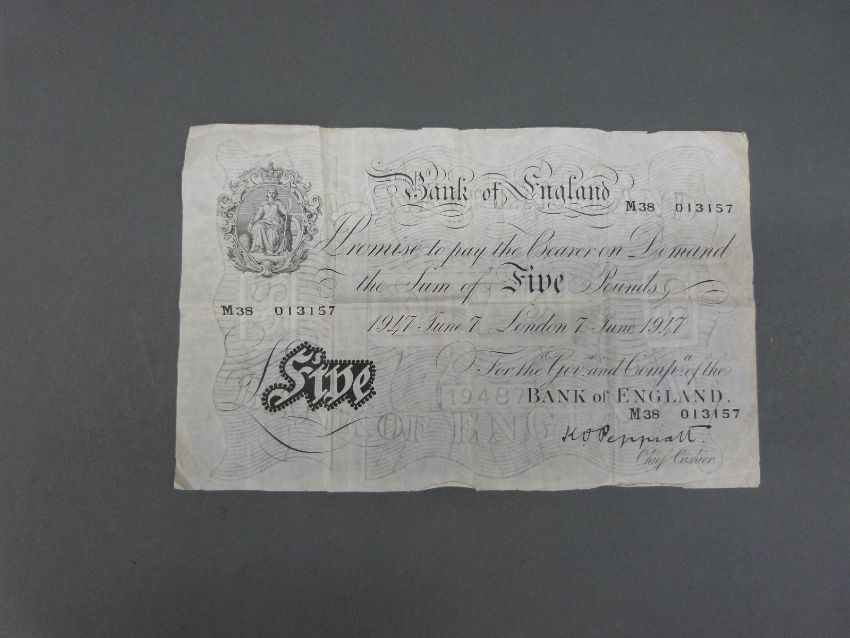 Bank of England
M38 013157
I Promise to pay the Bearer on Demand
the Sum of Five Pounds
M38 013157
1947 June 7 London 7 June 1947
For the Govr. and Compa. of the
£ Five
BANK of ENGLAND.
M38 013157
K O Peppiatt.
Chief Cashier.
19487
OF ENG